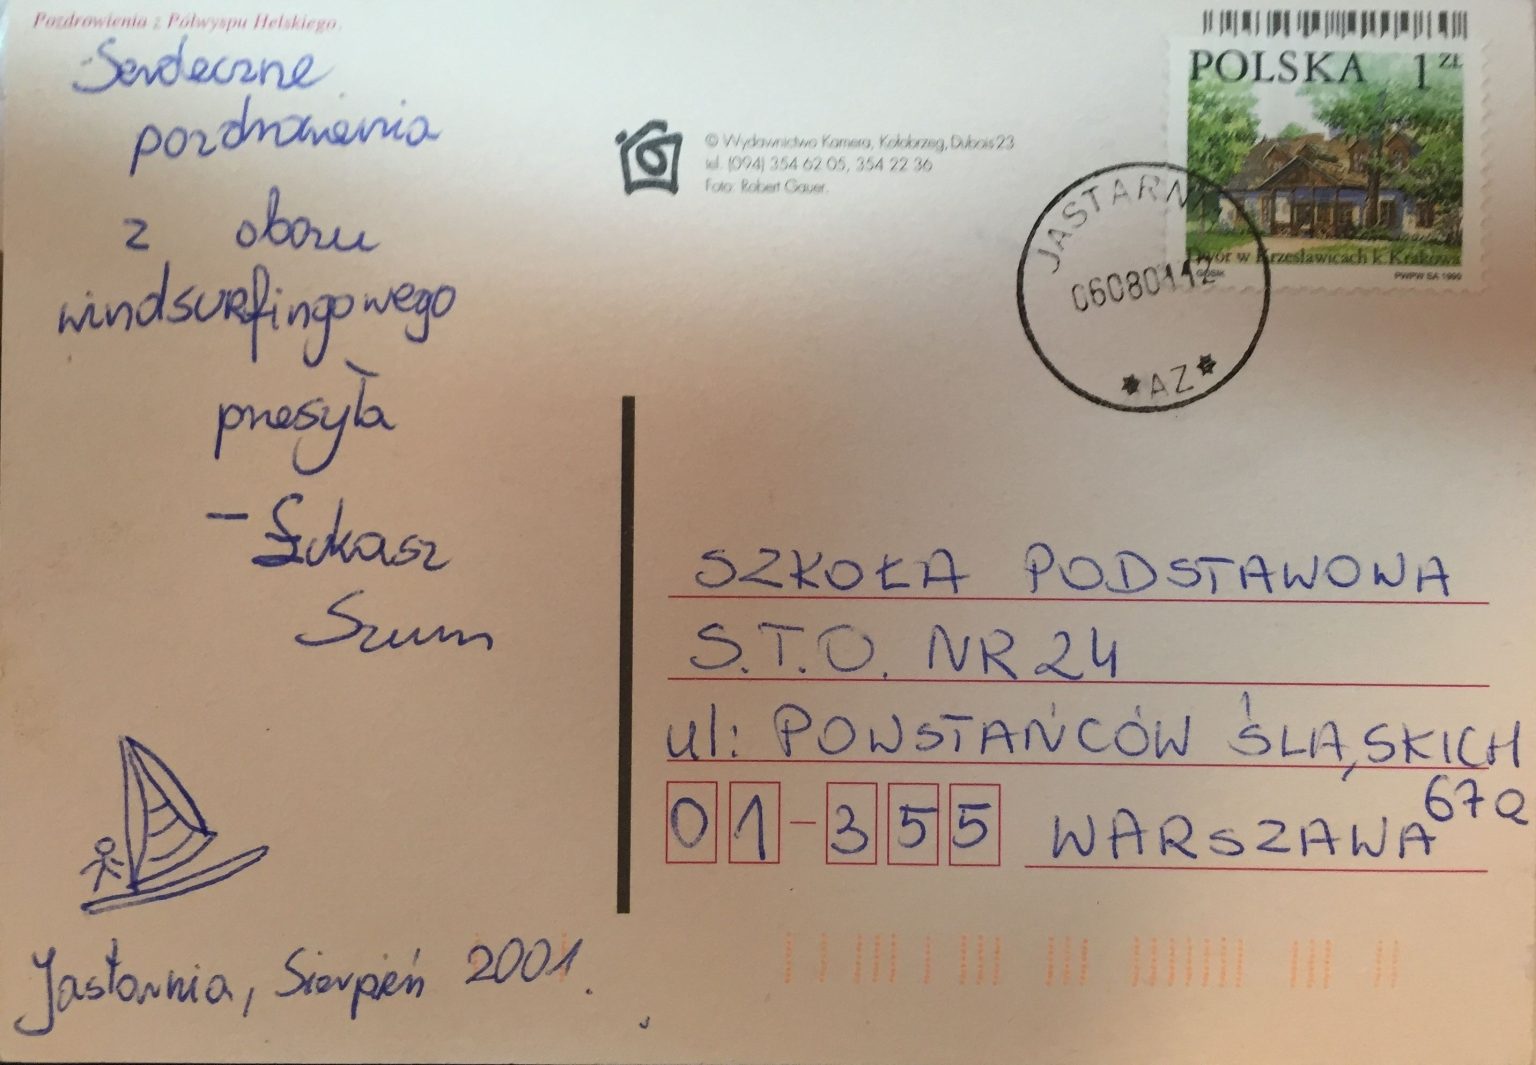 Pozdrowienia z Półwyspu Helskiego.
Serdeczne
pozdrowienia
z obozu
windsurfingowego
przesyła
- Łukasz
Szum
Jastarnia, Sierpień 2001.
© Wydawnictwo Kamera, Kołobrzeg, Dubois 23
tel. (094) 354 62 05, 354 22 36
Foto: Robert Gauer.
POLSKA 1 ZŁ
Dwór w Krzesławicach k. Krakowa
PWPW SA 1999
JASTARNIA
060801 12
*AZ*
SZKOŁA PODSTAWOWA
S.T.O. NR 24
ul: POWSTAŃCÓW ŚLĄSKICH
67a
01-355 WARSZAWA